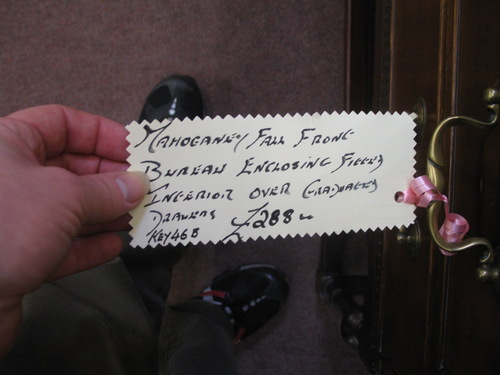 Mahoganey Fall Front
Bureau Enclosing Fitted
Interior over Graduated
Drawers £288
Key46B